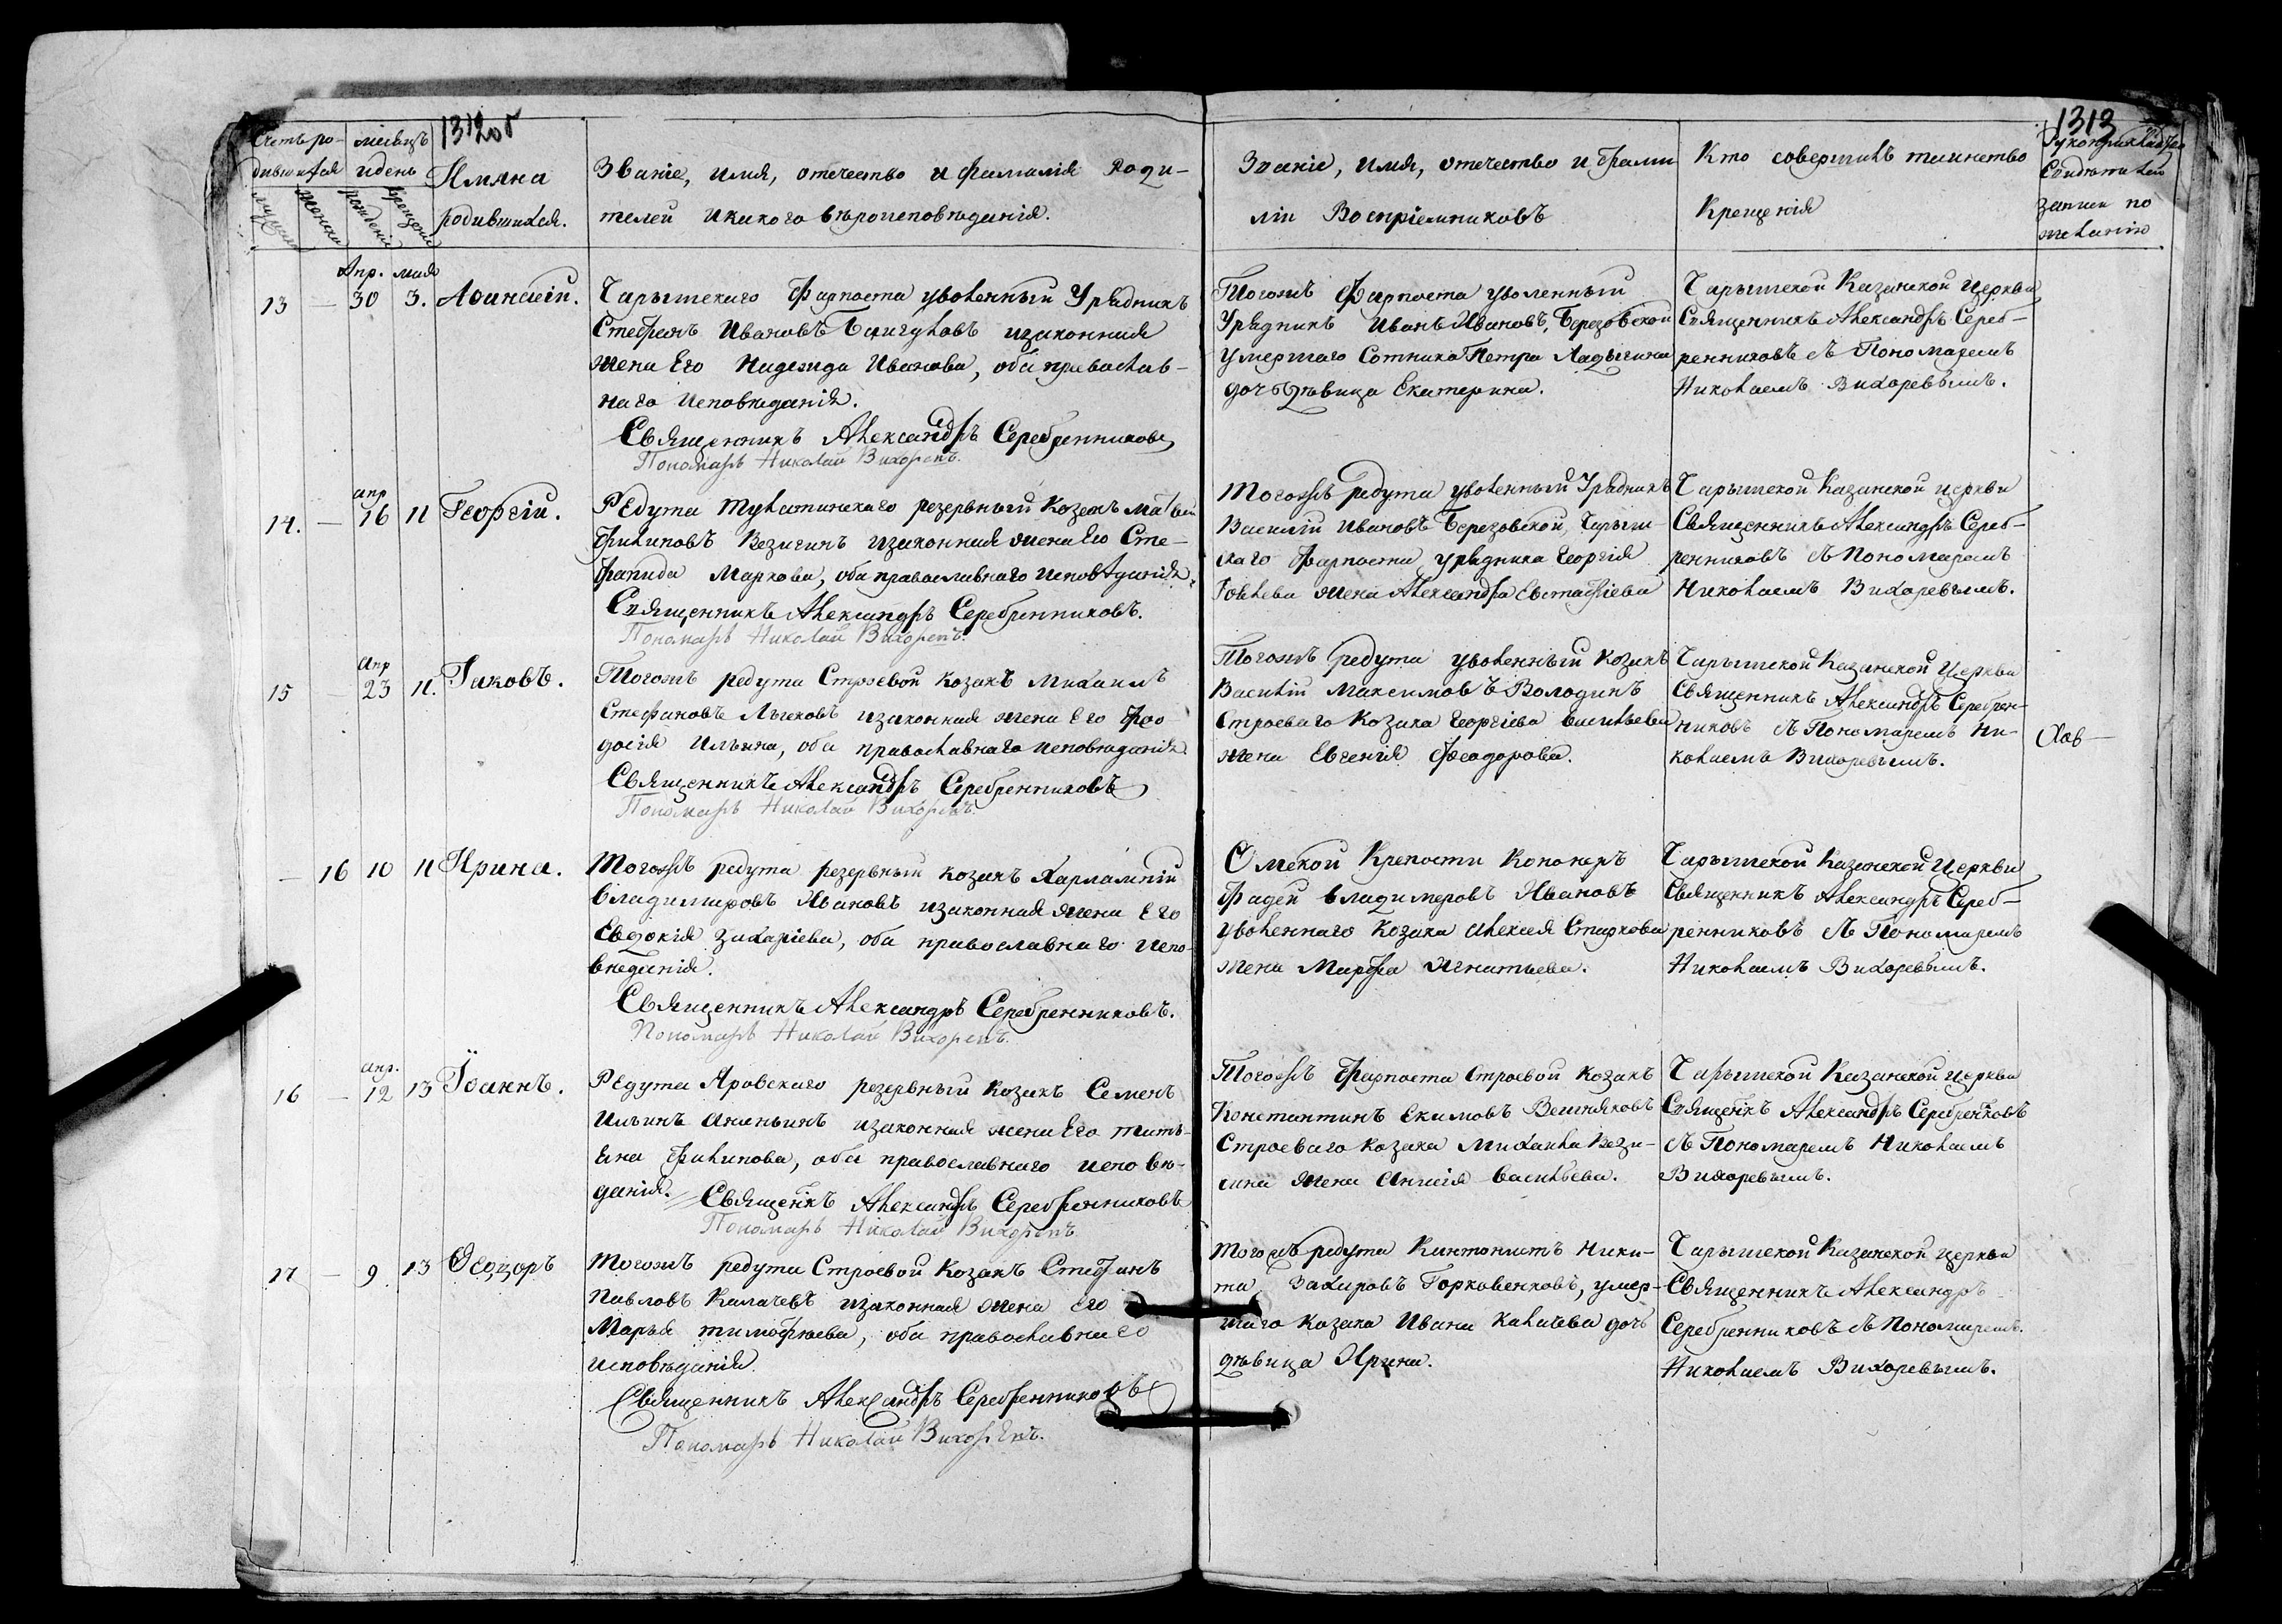 1312 об
1313
Счетъ ро-
дившихся
мѣсяцъ
и день
Имяна
родившихся.
Званіе, имя, отечество и фамилія Роди-
телей и какого вѣроисповѣданія.
мужска
женска
рожденія
крещенія
Званіе, имя, отечество и фами
ліи Воспріемниковъ
Кто совершилъ таинство
Крещенія
Рукоприкладство
Свидѣтелей
записи по
желанію
Апр. мая
13 — 30 3. Аѳанасій.
Чарышскаго Фарпоста уволенный Урядникъ
Стефанъ Ивановъ изаконная
жена Его Надежда Иванова, оба православ-
наго исповѣданія.
Священникъ Александръ Серебренниковъ
Пономарь Николай Вихоревъ.
Тогожъ Фарпоста уволенный
Урядникъ Иванъ Ивановъ Березовской
умершаго Сотника Петра Ладыгина
дочь дѣвица Екатерина.
Чарышской Казанской церкви
Священникъ Александръ Сереб-
ренниковъ съ Пономаремъ
Николаемъ Вихоревымъ.
апр
14. — 16 11 Георгій.
Редута Тулатинскаго резервный Козакъ Матвей
Филиповъ Везигинъ изаконная жена Его Сте-
фанида Маркова, оба православнаго исповѣданія.
Священникъ Александръ Серебренниковъ.
Пономарь Николай Вихоревъ.
Тогожъ редута уволенный Урядникъ
Василій Ивановъ Березовской, Чарыш-
скаго Фарпоста урядника Георгія
жена Александра Евстафіева
Чарышской Казанской церкви
Священникъ Александръ Сереб-
ренниковъ съ Пономаремъ
Николаемъ Вихоревымъ.
апр
15 — 23 11. Іаковъ.
Тогожъ редута Строевой козакъ Михаилъ
Стефановъ Лысковъ изаконная жена Его Фео
досія Ильина, оба православнаго исповѣданія
Священникъ Александръ Серебренниковъ
Пономарь Николай Вихоревъ.
Тогожъ редута уволенный козакъ
Василій Максимовъ Володинъ
Строеваго Козака Георгіева Васильева
жена Евгенія Феодорова.
Чарышской Казанской Церкви
Священникъ Александръ Серебрен-
никовъ съ Пономаремъ Ни-
колаемъ Вихоревымъ.
— 16 10 11 Ирина.
Тогожъ редута резервный козакъ Харлампій
Владимировъ Ивановъ изаконная жена Его
Евдокія Захаріева, оба православнаго испо-
вѣданія.
Священникъ Александръ Серебренниковъ.
Пономарь Николай Вихоревъ.
Омской Крепости Кононеръ
Фадей владимеровъ Ивановъ
уволеннаго козака Алексея Старкова
жена Марфа Игнатьева.
Чарышской Казанской Церкви
Священникъ Александръ Сереб-
ренниковъ съ Пономаремъ
Николаемъ Вихоревымъ.
апр.
16 — 12 13 Іоаннъ.
Редута Яровскаго резервный козакъ Семенъ
Ильинъ Ананьинъ изаконная жена Его тать-
яна Филипова, оба православнаго исповѣ-
данія. Священикъ Александръ Серебренниковъ
Пономарь Николай Вихоревъ
Тогожъ Фарпоста Строевой козакъ
Константинъ Екимовъ Вешняковъ
Строеваго козака Михаила Вези-
гина жена Анисія Васильева.
Чарышской Казанской церкви
Священикъ Александръ Серебренковъ
съ Пономаремъ Николаемъ
Вихоревымъ.
17 — 9. 13 Ѳеодоръ
Тогожъ редута Строевой Козакъ Стефанъ
Павловъ Калачевъ изаконная жена Его
Марья тимофѣева, оба православнаго
исповѣданія.
Священникъ Александръ Серебренниковъ
Пономарь Николай Вихоревъ.
Тогожъ редута Кантонистъ Ники-
та Захаровъ Горковенковъ, умер-
шаго козака Ивана Калачева дочь
дѣвица Ирина.
Чарышской Казанской церкви
Священникъ Александръ
Серебренниковъ съ Пономаремъ
Николаемъ Вихоревымъ.